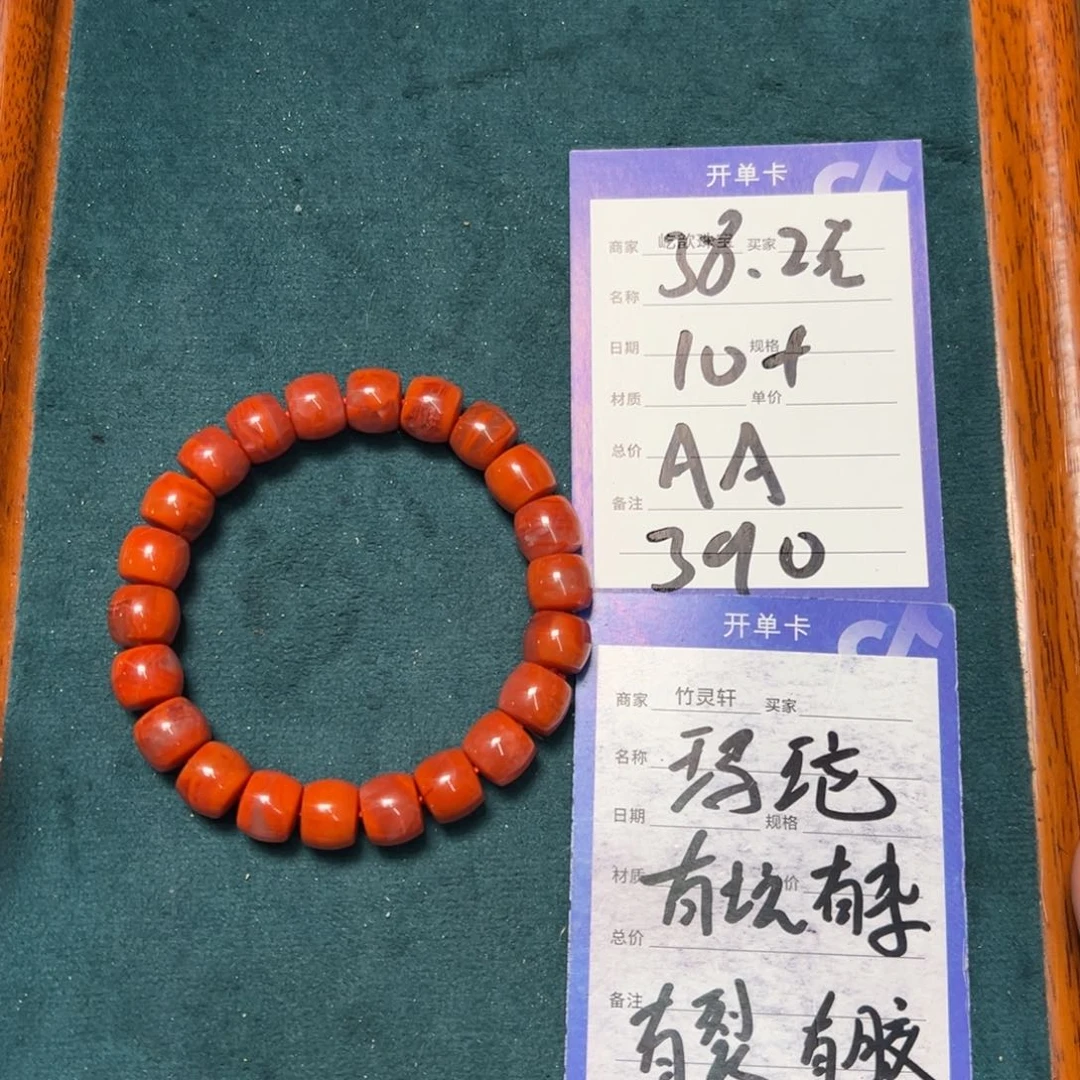 开单卡
商家 屹歆珠宝 买家
38.2克
名称
日期 规格
10+
材质 单价
总价
AA
备注
390
开单卡
商家 竹灵轩 买家
名称 玛瑙
日期 规格
材质 价
有坑 有染
总价
备注
有裂 有胶